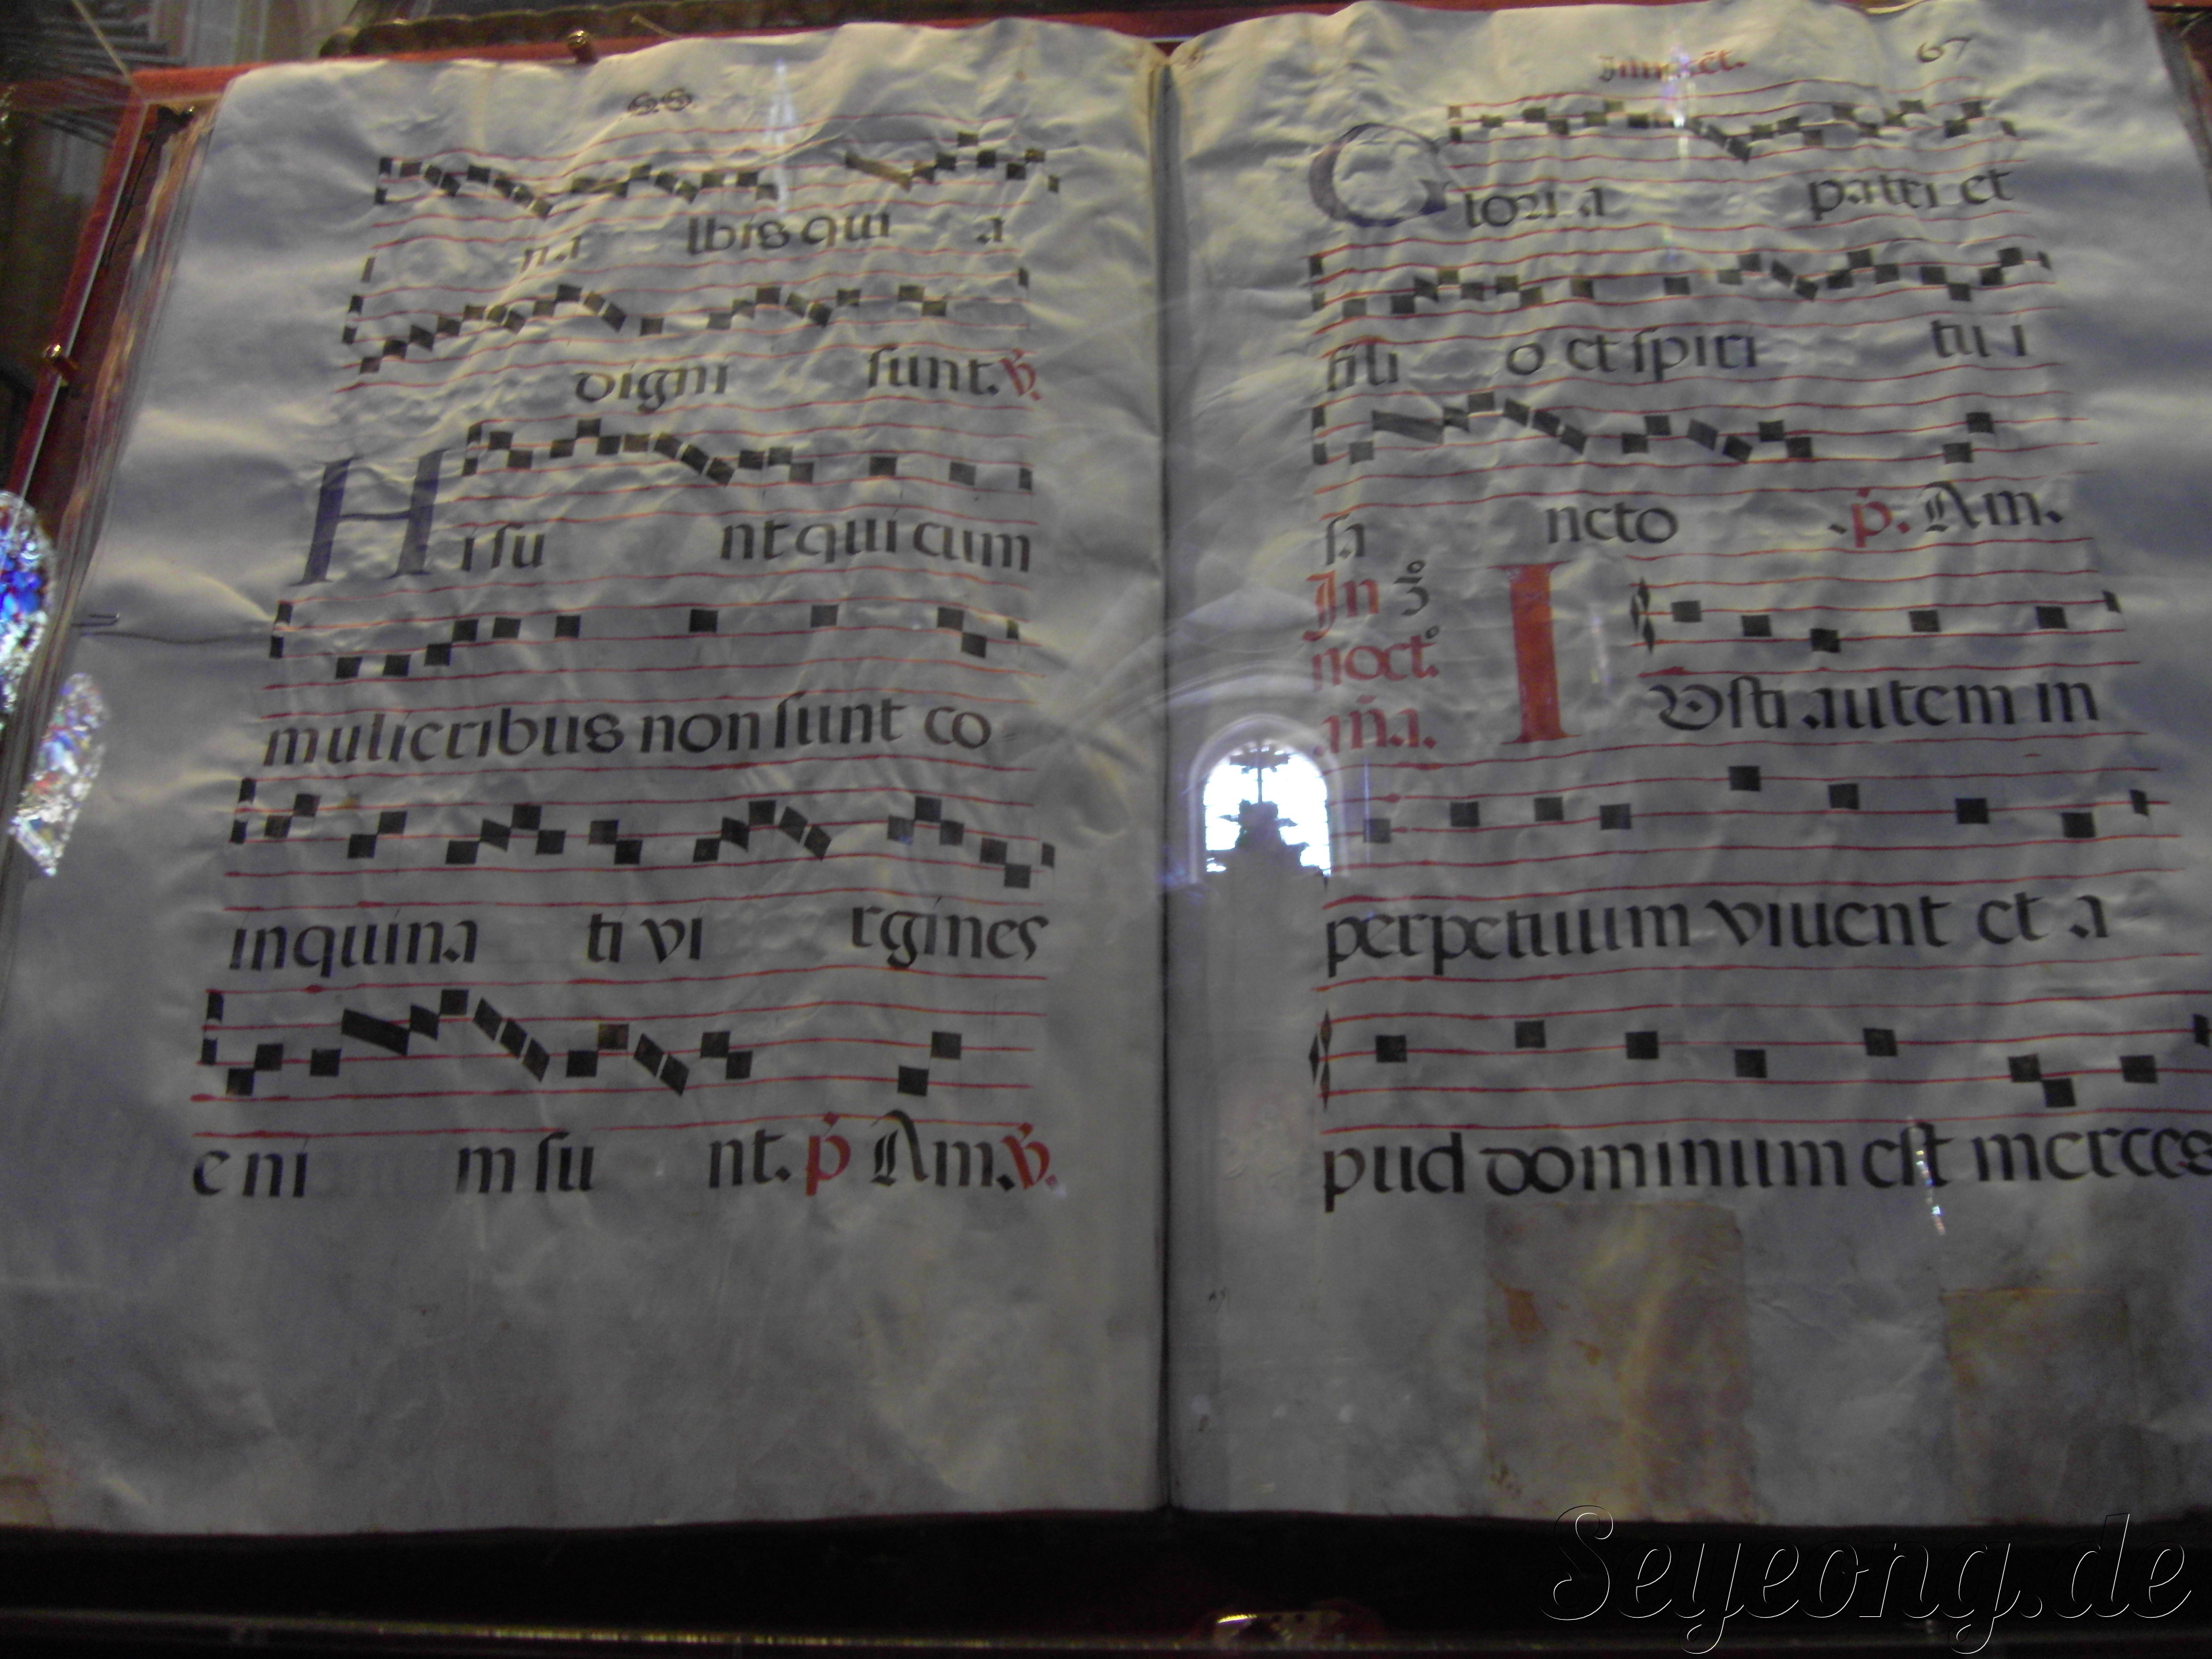 66
n a lbis qui a
digni sunt. ℣.
Hi su nt qui cum
mulieribus non sunt co
inquina ti vi rgines
e ni m su nt. p Am. ℣.
67
Glori a patri et
fili o et spiri tu i
sa ncto . p. Am.
In 3º
noct.º
añ.a.
I Usti autem in
perpetuum viuent et a
pud dominum est merces
Seyeong.de